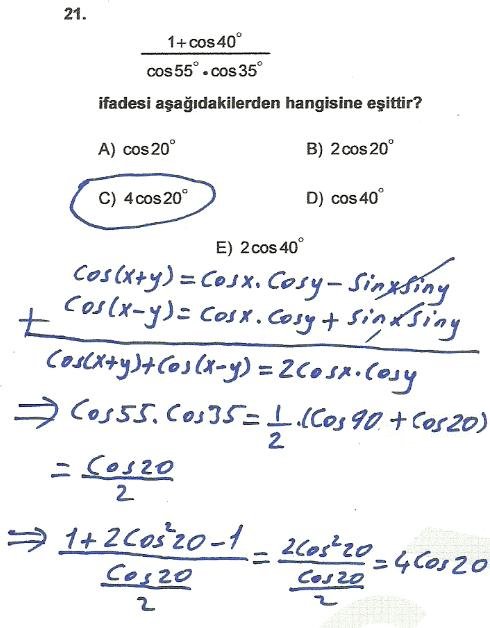 21.
1+cos40°
cos55°.cos35°
ifadesi aşağıdakilerden hangisine eşittir?
A) cos20°
B) 2cos20°
C) 4cos20°
D) cos40°
E) 2cos40°
Cos(x+y) = Cosx.Cosy - Sinx Siny
+ Cos(x-y) = Cosx.Cosy + Sinx Siny
Cos(x+y)+Cos(x-y) = 2Cosx.Cosy
⇒ Cos55.Cos35 = 1/2 .(Cos90 + Cos20)
= Cos20/2
⇒ (1+2Cos²20-1)/(Cos20/2) = 2Cos²20/(Cos20/2) = 4Cos20